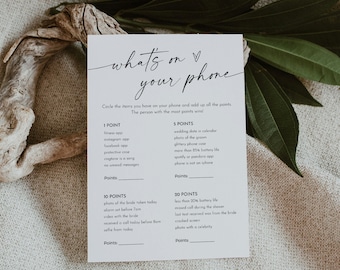 what's on
your phone
Circle the items you have on your phone and add up all the points.
The person with the most points wins.
1 POINT
fitness app
instagram app
facebook app
protective case
ringtone is a song
no unread messages
Points:
5 POINTS
wedding date in calendar
photo of the groom
glittery phone case
more than 80% battery life
spotify or pandora app
phone is not on silent
Points:
10 POINTS
photo of the bride taken today
alarm set before 7am
video with the bride
received a call today before 9am
selfie from today
Points:
20 POINTS
less than 20% battery life
missed call during the shower
last text received was from the bride
cracked screen
photo with a celebrity
Points: